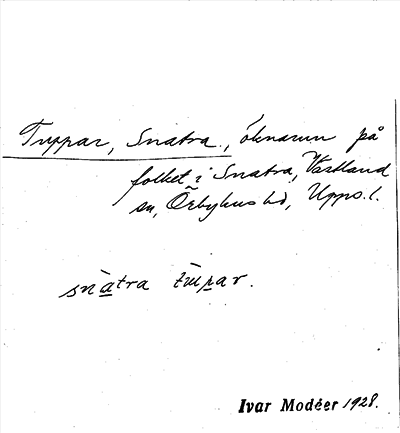 Tuppar, Snatra, öknamn på
folket i Snatra, Vestland
sn, Örbyhus hd, Upps. l.
snatra tupar.
Ivar Modéer 1928.